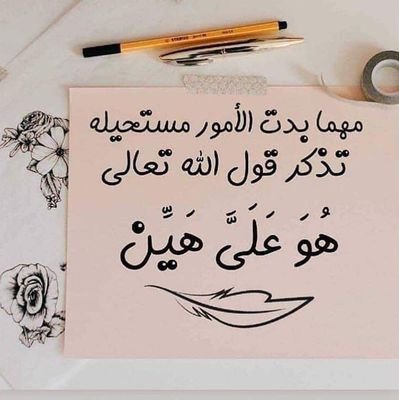 مهما بدت الأمور مستحيله
تذكر قول الله تعالى
هُوَ عَلَيَّ هَيِّنْ